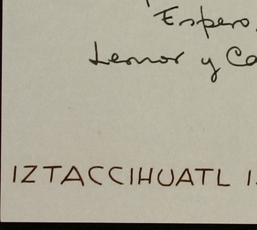 Espero,
Leonor y Ca
IZTACCIHUATL 1